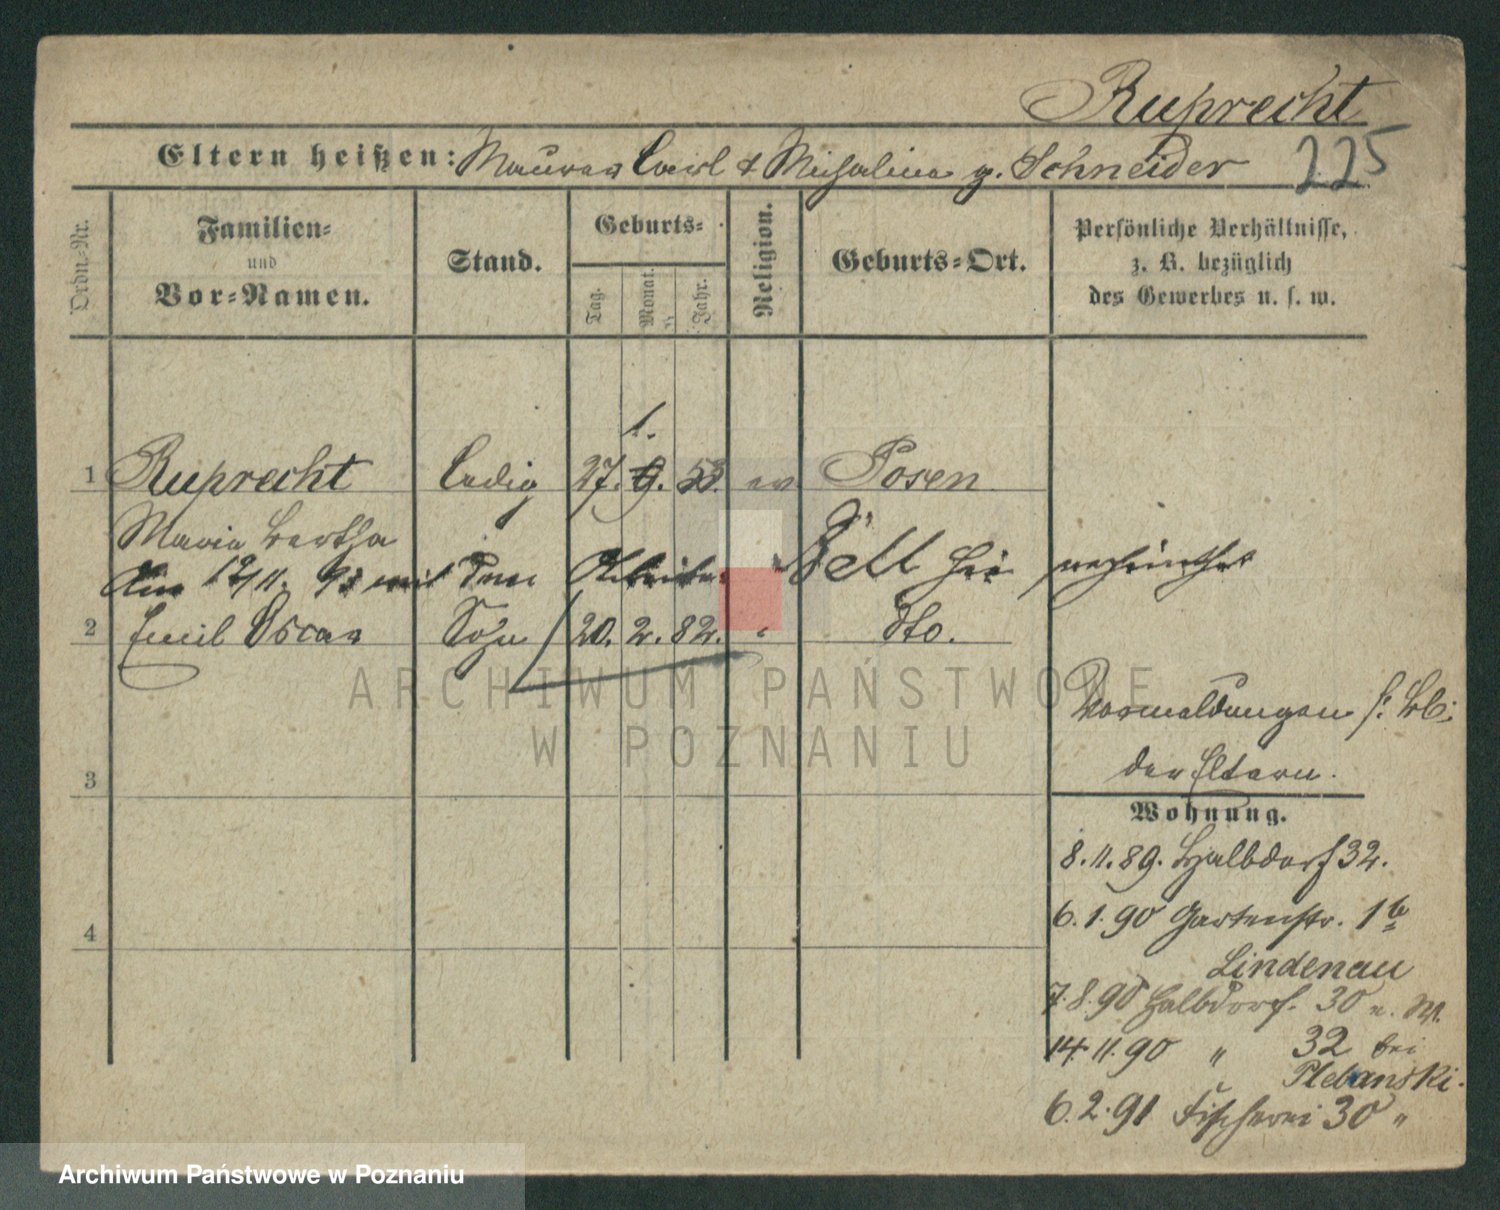 Ruprecht
225
Eltern heißen: Maurer Carl & Michalina g. Schneider
Ordn.-Nr.
Familien-
und
Vor-Namen.
Stand.
Geburts-
Tag.
Monat.
Jahr.
Religion.
Geburts-Ort.
Persönliche Verhältnisse,
z. B. bezüglich
des Gewerbes u. s. w.
1.
1 Ruprecht ledig 27. 9. 53. ev Posen
Maria Bertha
Am 12/11. mit dem Arbeiter hier verheirathet
2 Emil Oscar Sohn 20. 2. 82. dto.
Vormeldungen s.
der Eltern.
3
Wohnung.
8.11.89. Halbdorf 32.
6.1.90 Gartenstr. 1b
4
Lindenau
7.8.90 Halbdorf. 30
14.11.90 " 32 bei
Plebanski.
6.2.91 Fischerei 30 "
ARCHIWUM PAŃSTWOWE
W POZNANIU
Archiwum Państwowe w Poznaniu